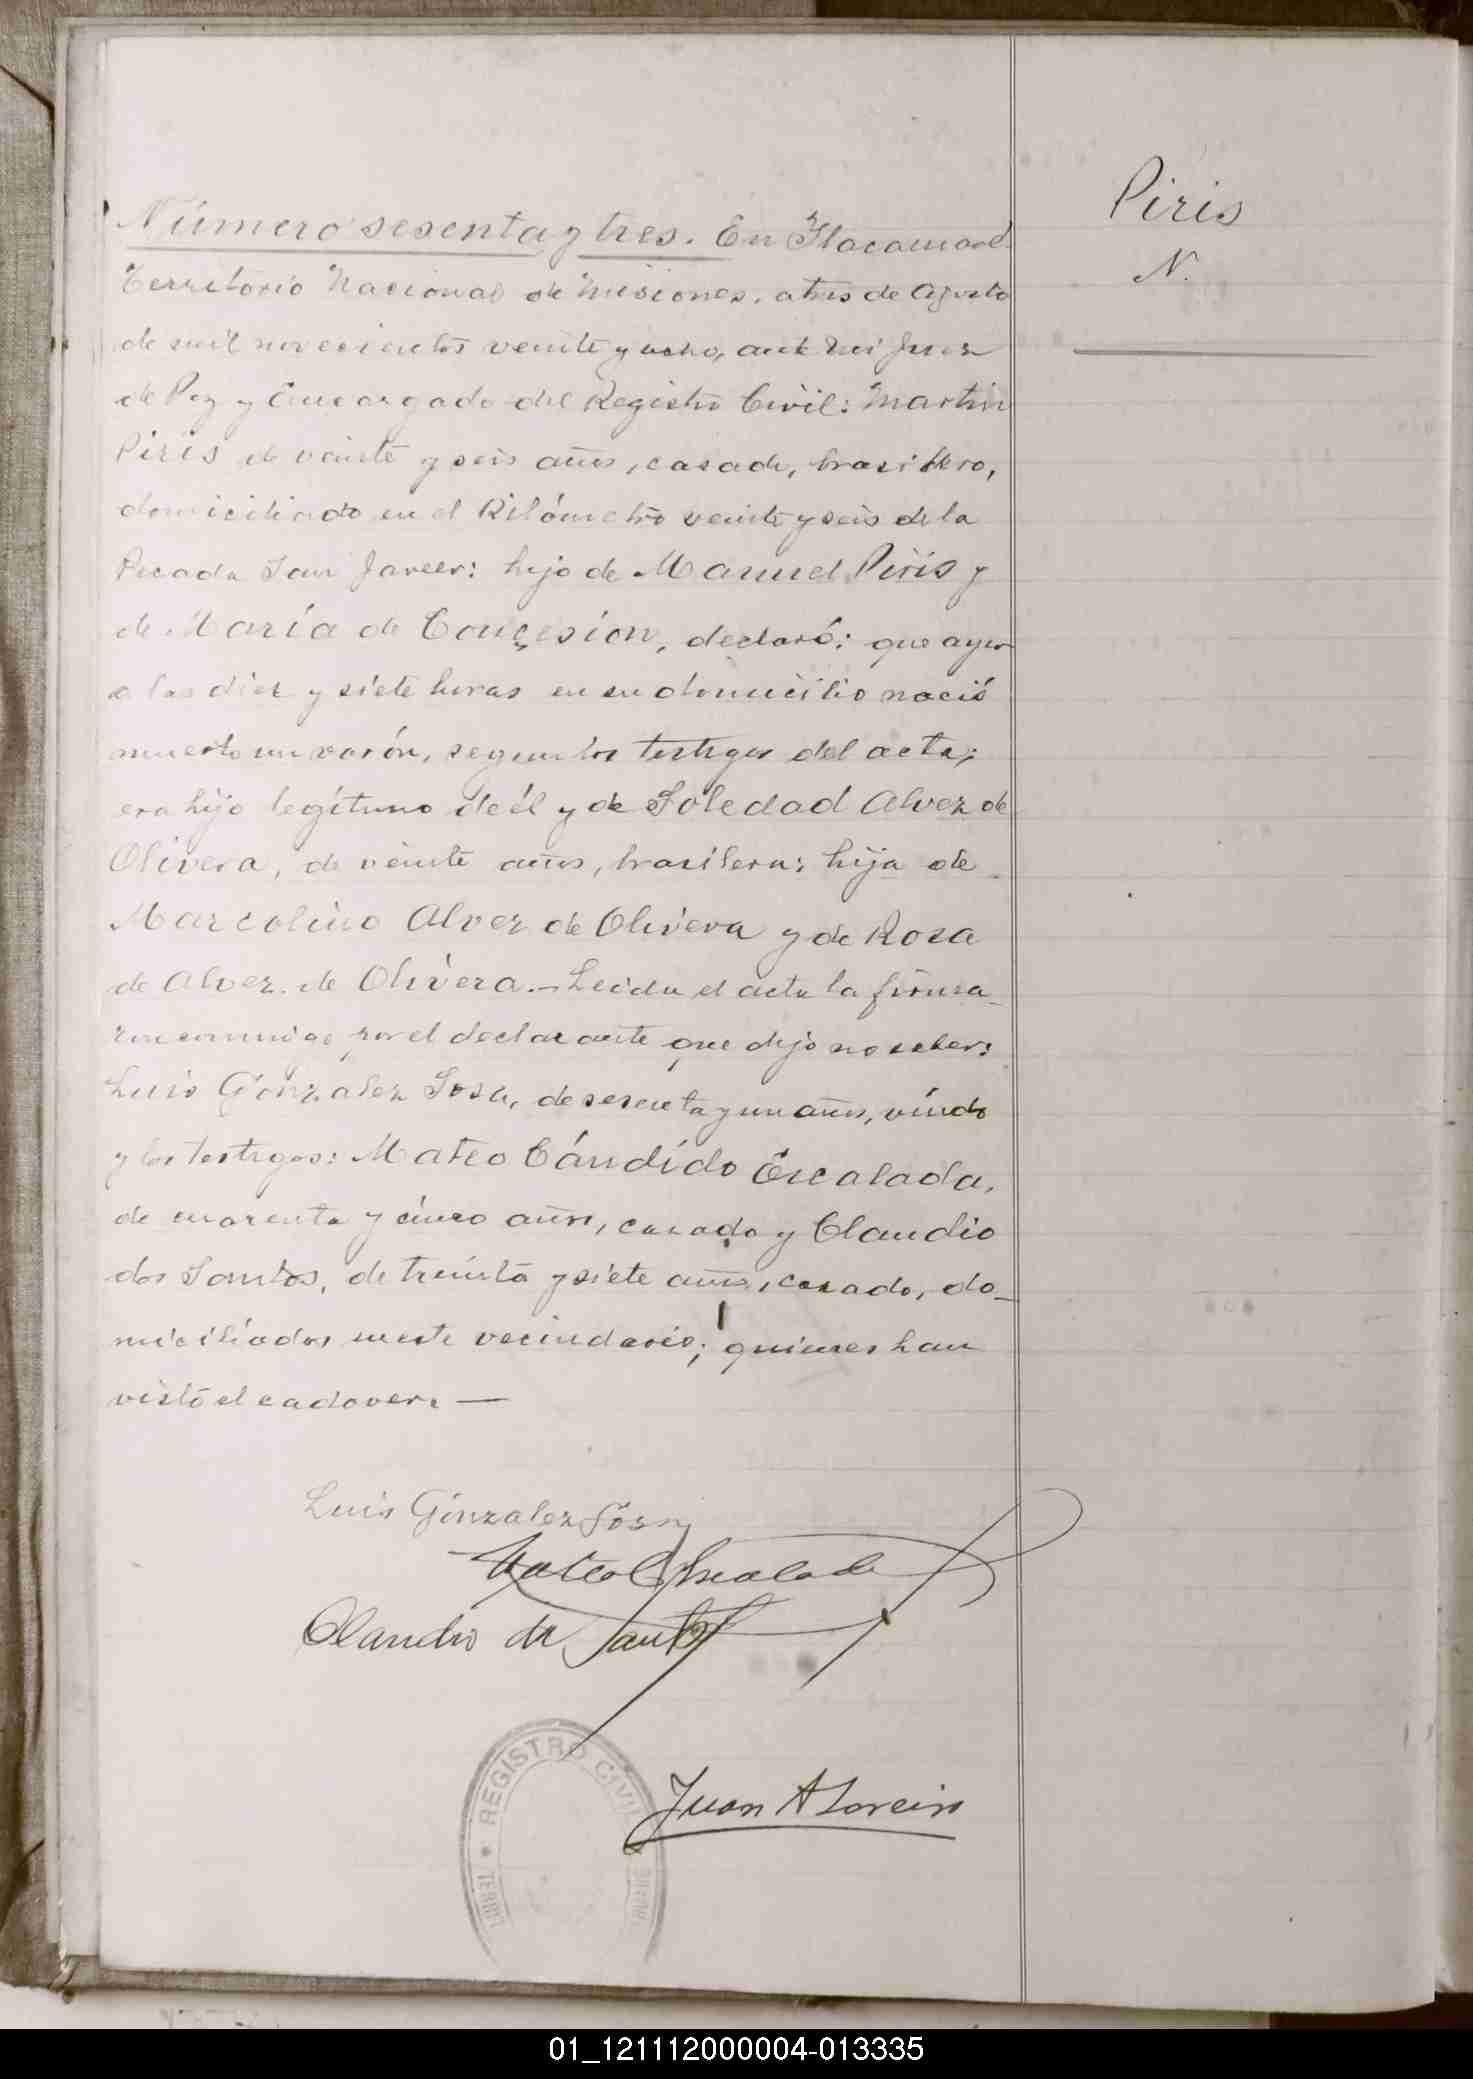 Número sesenta y tres. En Itacaruaré
Territorio Nacional de Misiones, a tres de Agosto
de mil novecientos veinte y ocho, ante mi Juez
de Paz y Encargado del Registro Civil: Martin
Piris de veinte y seis años, casado, brasilero,
domiciliado en el Kilómetro veinte y seis de la
Picada San Javier: hijo de Manuel Piris y
de María de Conçesión, declaró: que ayer
a las diez y siete horas en su domicilio nació
muerto un varón, segun los testigos del acta;
era hijo legítimo de él y de Soledad Alvez de
Olivera, de veinte años, brasilera; hija de
Marcolino Alvez de Olivera y de Rosa
de Alvez de Olivera.- Leida el acta la firma-
ron conmigo por el declarante que dijo no saber:
Luis Gonzalez Sosa, de sesenta y un años, viudo
y los testigos: Mateo Cándido Escalada,
de cuarenta y cinco años, casado y Claudio
dos Santos, de treinta y siete años, casado, do-
miciliados en este vecindario; quienes han
visto el cadaver. —
Luis Gonzalez Sosa
Mateo C Escalada
Claudio do Santos
Juan A
REGISTRO CIVIL
Piris
N.
01_121112000004-013335